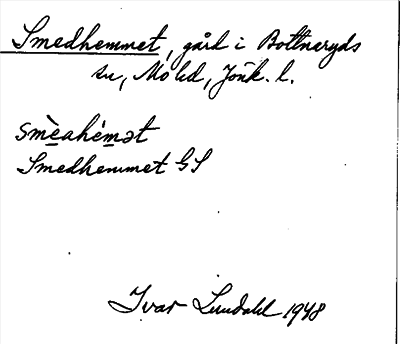 Smedhemmet, gård i Bottneryds
sn, Mo hd, Jönk. l.
smèahémət
Smedhemmet GS
Ivar Lundahl 1948